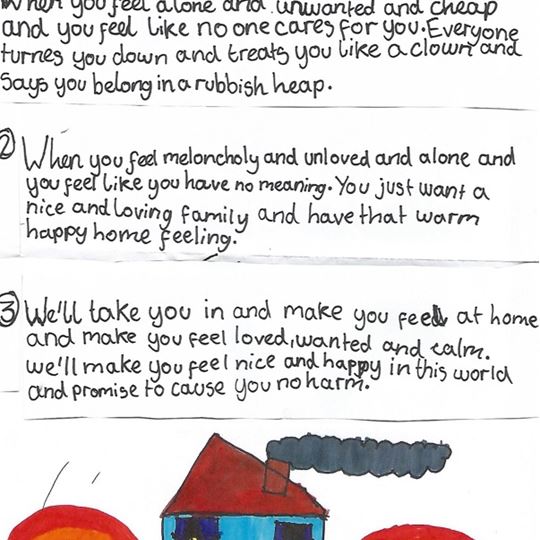 When you feel alone and unwanted and cheap
and you feel like no one cares for you. Everyone
turnes you down and treats you like a clown and
says you belong in a rubbish heap.
2 When you feel meloncholy and unloved and alone and
you feel like you have no meaning. You just want a
nice and loving family and have that warm
happy home feeling.
3 We'll take you in and make you feel at home
and make you feel loved, wanted and calm.
we'll make you feel nice and happy in this world
and promise to cause you no harm.